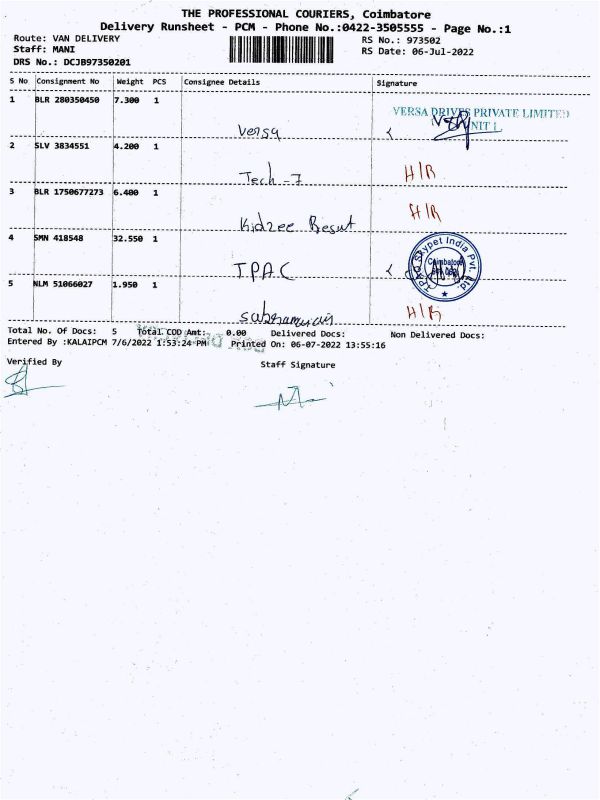 THE PROFESSIONAL COURIERS, Coimbatore
Delivery Runsheet - PCM - Phone No.:0422-3505555 - Page No.:1
Route: VAN DELIVERY RS No.: 973502
Staff: MANI RS Date: 06-Jul-2022
DRS No.: DCJB97350201
S No Consignment No Weight PCS Consignee Details Signature
1 BLR 280350450 7.300 1
VERSA DRIVES PRIVATE LIMITED
UNIT I
Versa
2 SLV 3834551 4.200 1
Tech-7 H/R
3 BLR 1750677273 6.400 1
Kidzee H/R
4 SMN 418548 32.550 1
TPAC
Skypet India Pvt. Ltd.
Coimbatore
5 NLM 51066027 1.950 1
H/R
Total No. Of Docs: 5 Total COD Amt: 0.00 Delivered Docs: Non Delivered Docs:
Entered By :KALAIPCM 7/6/2022 1:53:24 PM Printed On: 06-07-2022 13:55:16
Verified By Staff Signature